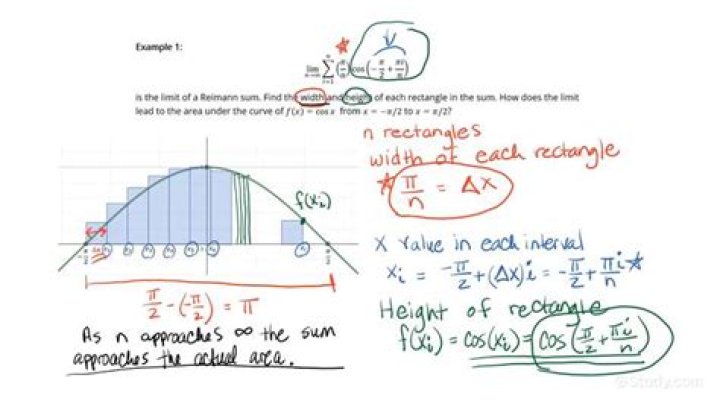 Example 1:
lim n→∞ n ∑ i=1 (π/n) cos(-π/2 + πi/n)
is the limit of a Reimann sum. Find the width and height of each rectangle in the sum. How does the limit
lead to the area under the curve of f(x) = cos x from x = -π/2 to x = π/2?
n rectangles
width of each rectangle
π/n = Δx
f(xᵢ)
x value in each interval
xᵢ = -π/2 + (Δx)i = -π/2 + πi/n
π/2 - (-π/2) = π
Height of rectangle
f(xᵢ) = cos(xᵢ) = cos(π/2 + πi/n)
As n approaches ∞ the sum
approaches the actual area.
Study.com